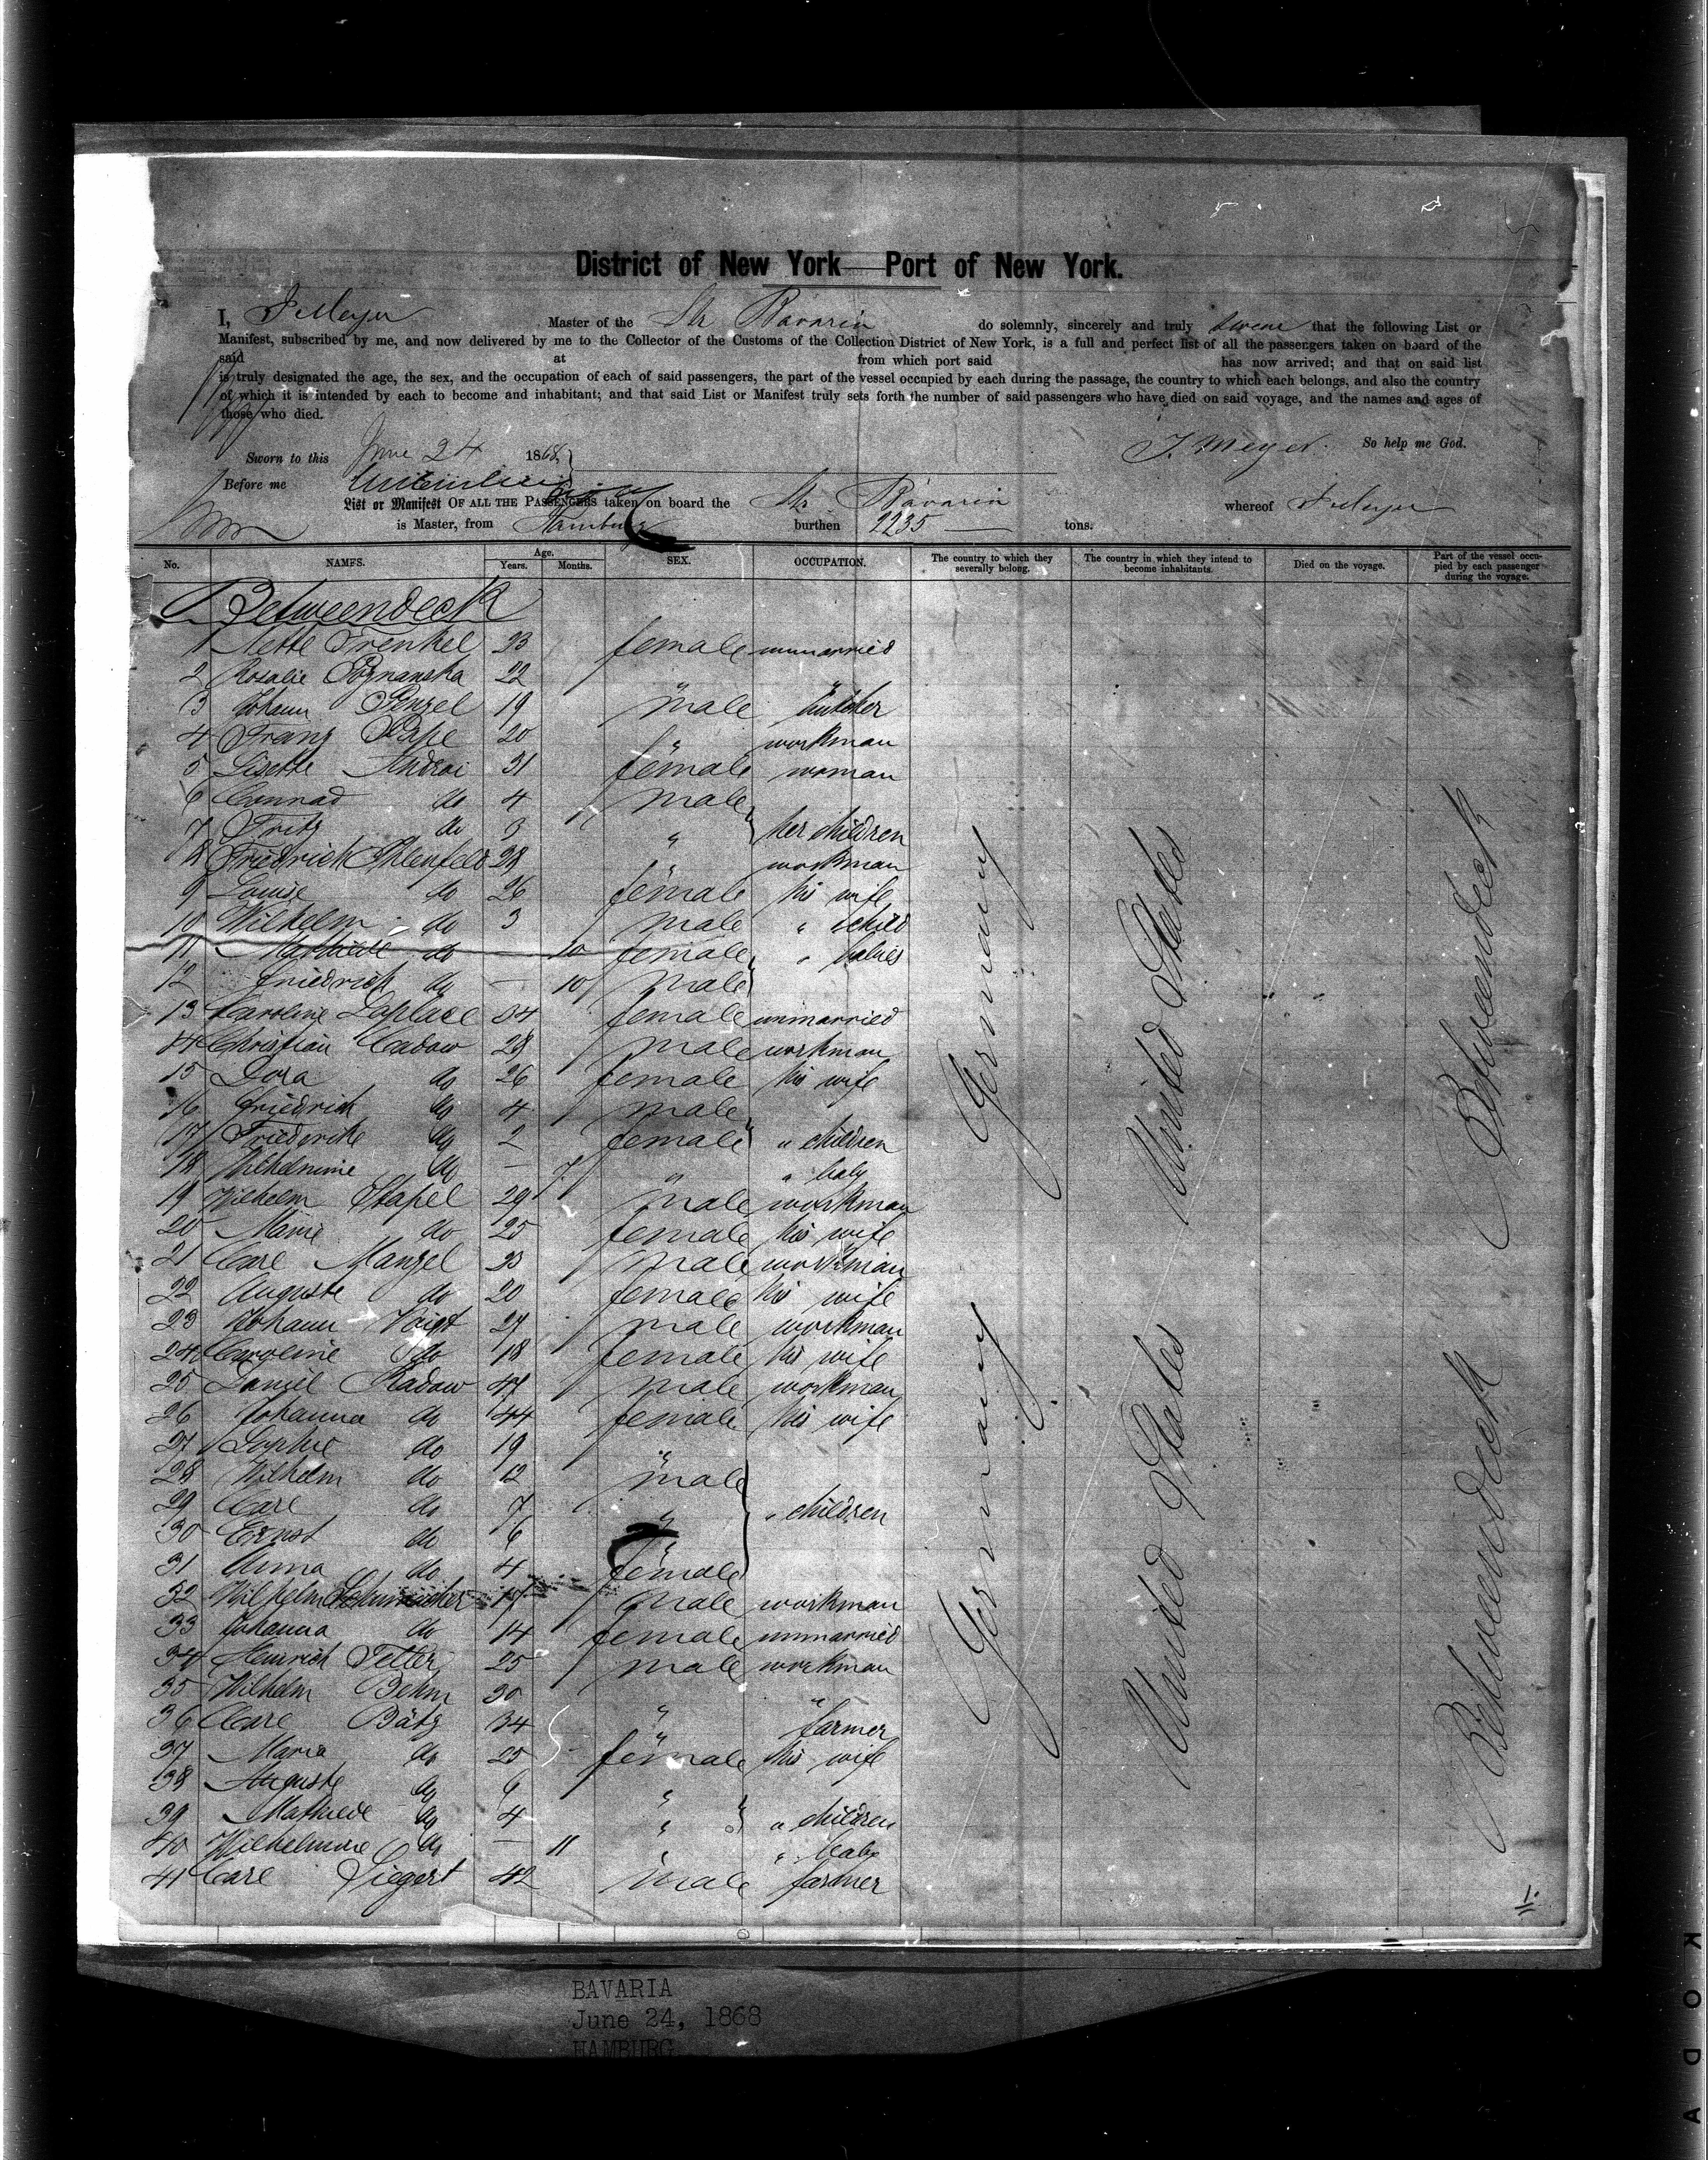 District of New York — Port of New York.
I, J Meyer Master of the Str Bavaria do solemnly, sincerely and truly swear that the following List or
Manifest, subscribed by me, and now delivered by me to the Collector of the Customs of the Collection District of New York, is a full and perfect list of all the passengers taken on board of the
said at from which port said has now arrived; and that on said list
is truly designated the age, the sex, and the occupation of each of said passengers, the part of the vessel occupied by each during the passage, the country to which each belongs, and also the country
of which it is intended by each to become and inhabitant; and that said List or Manifest truly sets forth the number of said passengers who have died on said voyage, and the names and ages of
those who died.
Sworn to this June 24 1868 J. Meyer. So help me God.
Before me
List or Manifest OF ALL THE PASSENGERS taken on board the Str Bavaria whereof J Meyer
is Master, from Hamburg burthen 2235 tons.
No. NAMES. Age. Years. Months. SEX. OCCUPATION. The country to which they severally belong. The country in which they intend to become inhabitants. Died on the voyage. Part of the vessel occupied by each passenger during the voyage.
Betweendeck
1 Nette Frenkel 23 female unmarried
2 Rosalie Poznanska 22 " "
3 Johann Penzel 19 male butcher
4 Franz Pape 20 " workman
5 Lisette Androi 31 female woman
6 Conrad do 4 male
7 Fritz do 3 " her children
8 Friedrich Ahlenfeld 28 " workman
9 Louise do 26 female his wife
10 Wilhelm do 3 male " child
11 Mathilde do 10 female " babies
12 Friedrich do — 10 male
13 Caroline Laplace 34 female unmarried
14 Christian Cadow 28 male workman
15 Dora do 26 female his wife
16 Friedrich do 4 male
17 Friederike do 2 female " children
18 Wilhelmine do — 7 " " baby
19 Wilhelm Stapel 29 male workman
20 Marie do 25 female his wife
21 Carl Manzel 23 male workman
22 Auguste do 20 female his wife
23 Johann Voigt 27 male workman
24 Caroline do 18 female his wife
25 Daniel Radow 47 male workman
26 Johanna do 44 female his wife
27 Sophie do 19 "
28 Wilhelm do 12 male
29 Carl do 7 " " children
30 Ernst do 6 "
31 Anna do 4 female
32 Wilhelm Schumacher 17 male workman
33 Johanna do 14 female unmarried
34 Heinrich Tetter 25 male workman
35 Wilhelm Behm 30 " "
36 Carl Bätz 34 " farmer
37 Maria do 25 female his wife
38 Auguste do 6 "
39 Mathilde do 4 " " children
40 Wilhelmine do — 11 " " baby
41 Carl Siegert 42 male farmer
Germany
Germany
United States
United States
Betweendeck
Betweendeck
1.
BAVARIA
June 24, 1868
HAMBURG
KODA